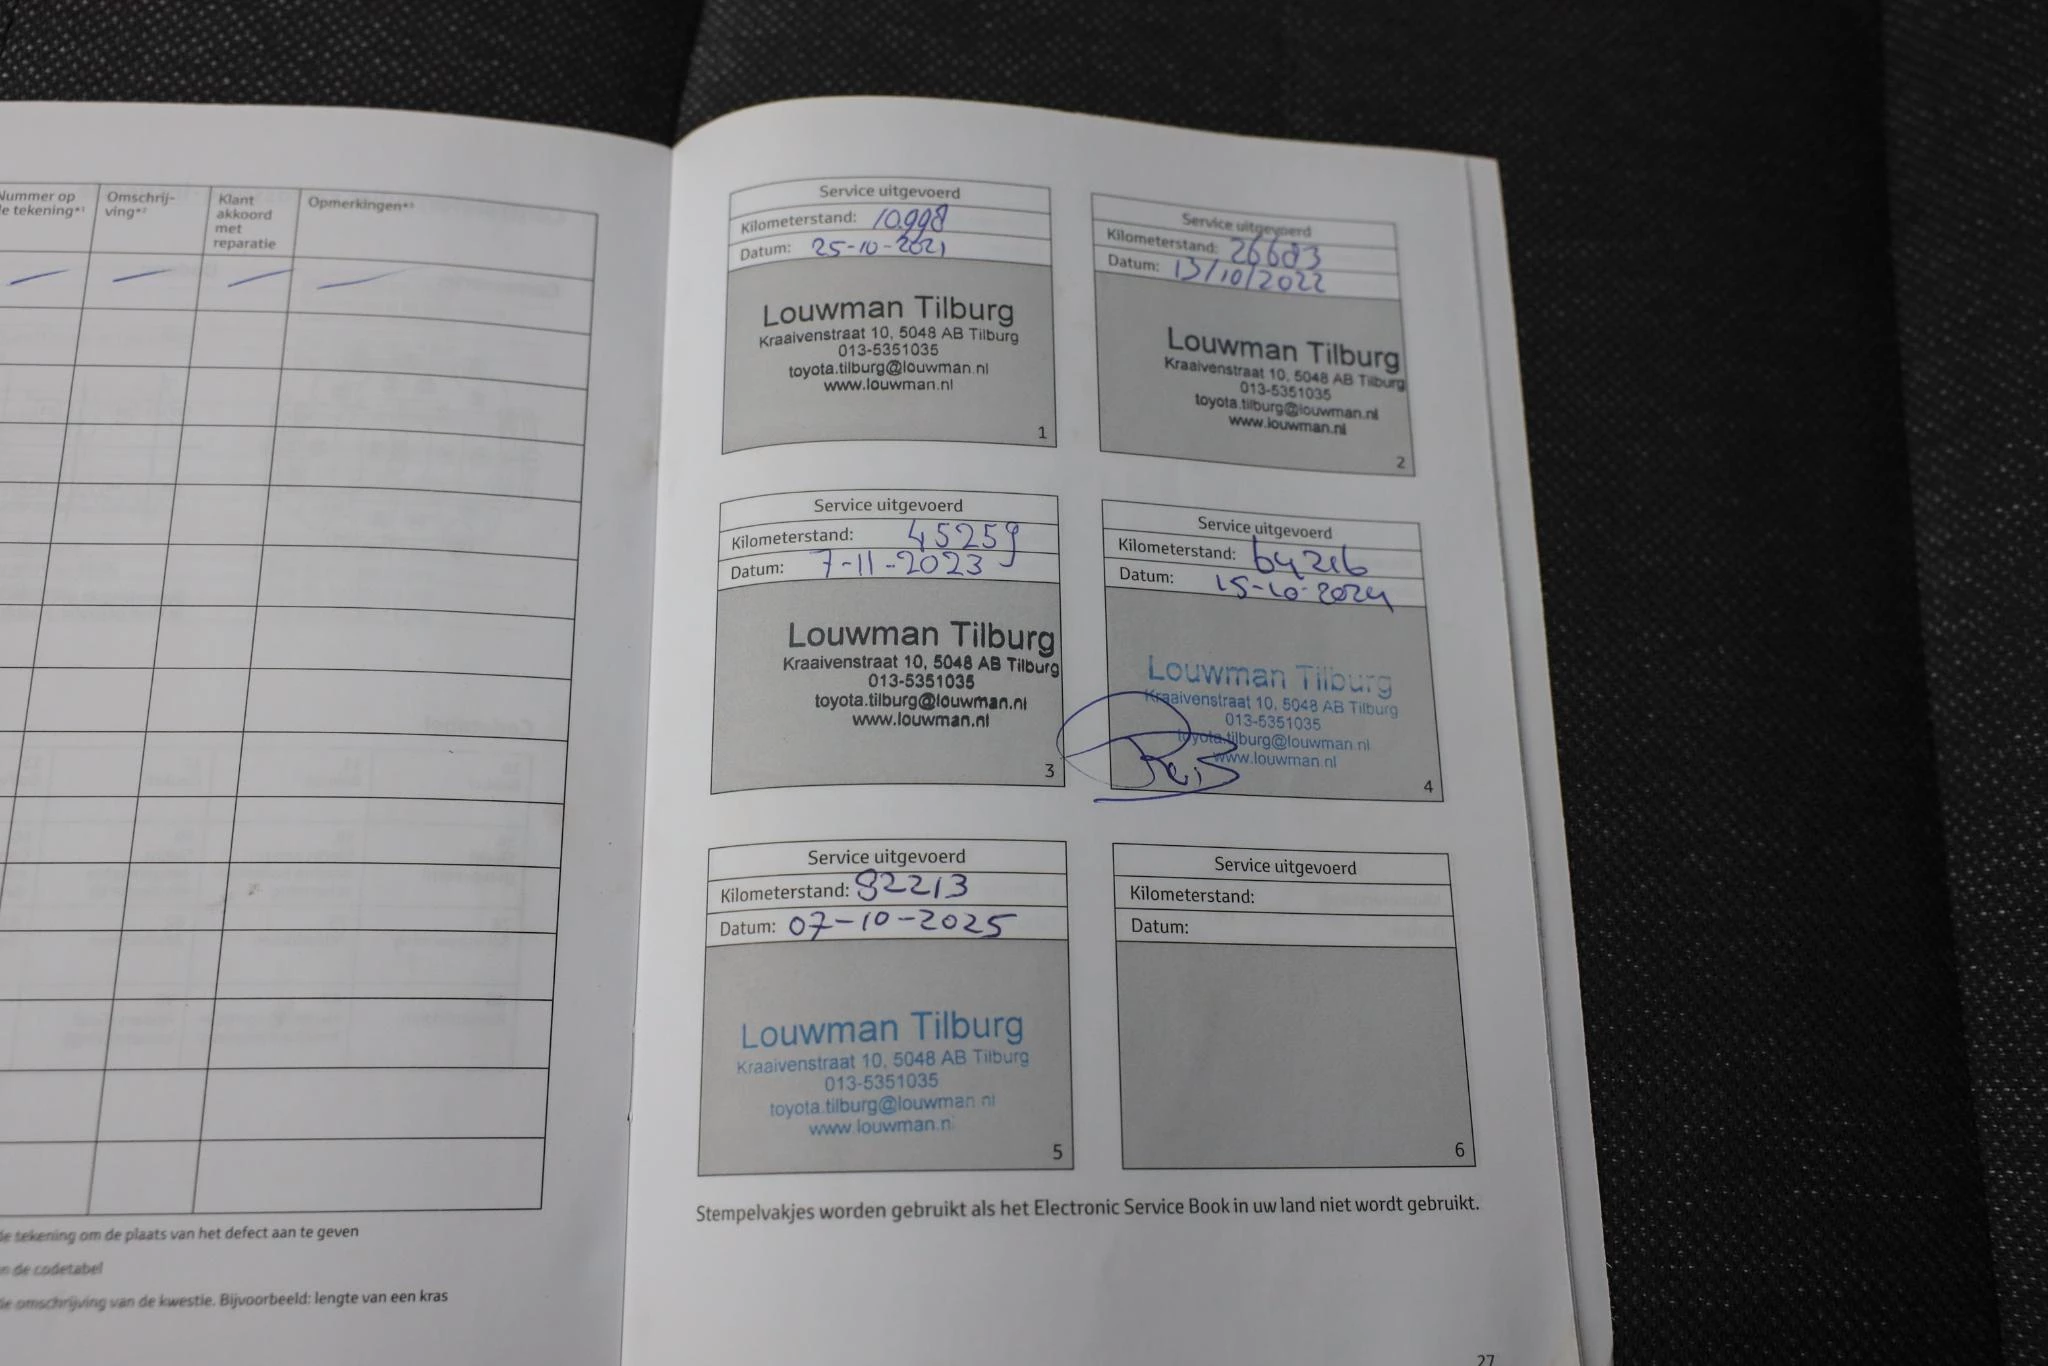 Nummer op
de tekening*¹
Omschrij-
ving*²
Klant
akkoord
met
reparatie
Opmerkingen*³
de tekening om de plaats van het defect aan te geven
de codetabel
de omschrijving van de kwestie. Bijvoorbeeld: lengte van een kras
Service uitgevoerd
Kilometerstand: 10.998
Datum: 25-10-2021
Louwman Tilburg
Kraaivenstraat 10, 5048 AB Tilburg
013-5351035
toyota.tilburg@louwman.nl
www.louwman.nl
1
Service uitgevoerd
Kilometerstand: 26683
Datum: 13/10/2022
Louwman Tilburg
Kraaivenstraat 10, 5048 AB Tilburg
013-5351035
toyota.tilburg@louwman.nl
www.louwman.nl
2
Service uitgevoerd
Kilometerstand: 45259
Datum: 7-11-2023
Louwman Tilburg
Kraaivenstraat 10, 5048 AB Tilburg
013-5351035
toyota.tilburg@louwman.nl
www.louwman.nl
3
Service uitgevoerd
Kilometerstand: 64216
Datum: 15-10-2024
Louwman Tilburg
Kraaivenstraat 10, 5048 AB Tilburg
013-5351035
toyota.tilburg@louwman.nl
www.louwman.nl
4
Service uitgevoerd
Kilometerstand: 82213
Datum: 07-10-2025
Louwman Tilburg
Kraaivenstraat 10, 5048 AB Tilburg
013-5351035
toyota.tilburg@louwman.nl
www.louwman.nl
5
Service uitgevoerd
Kilometerstand:
Datum:
6
Stempelvakjes worden gebruikt als het Electronic Service Book in uw land niet wordt gebruikt.
27